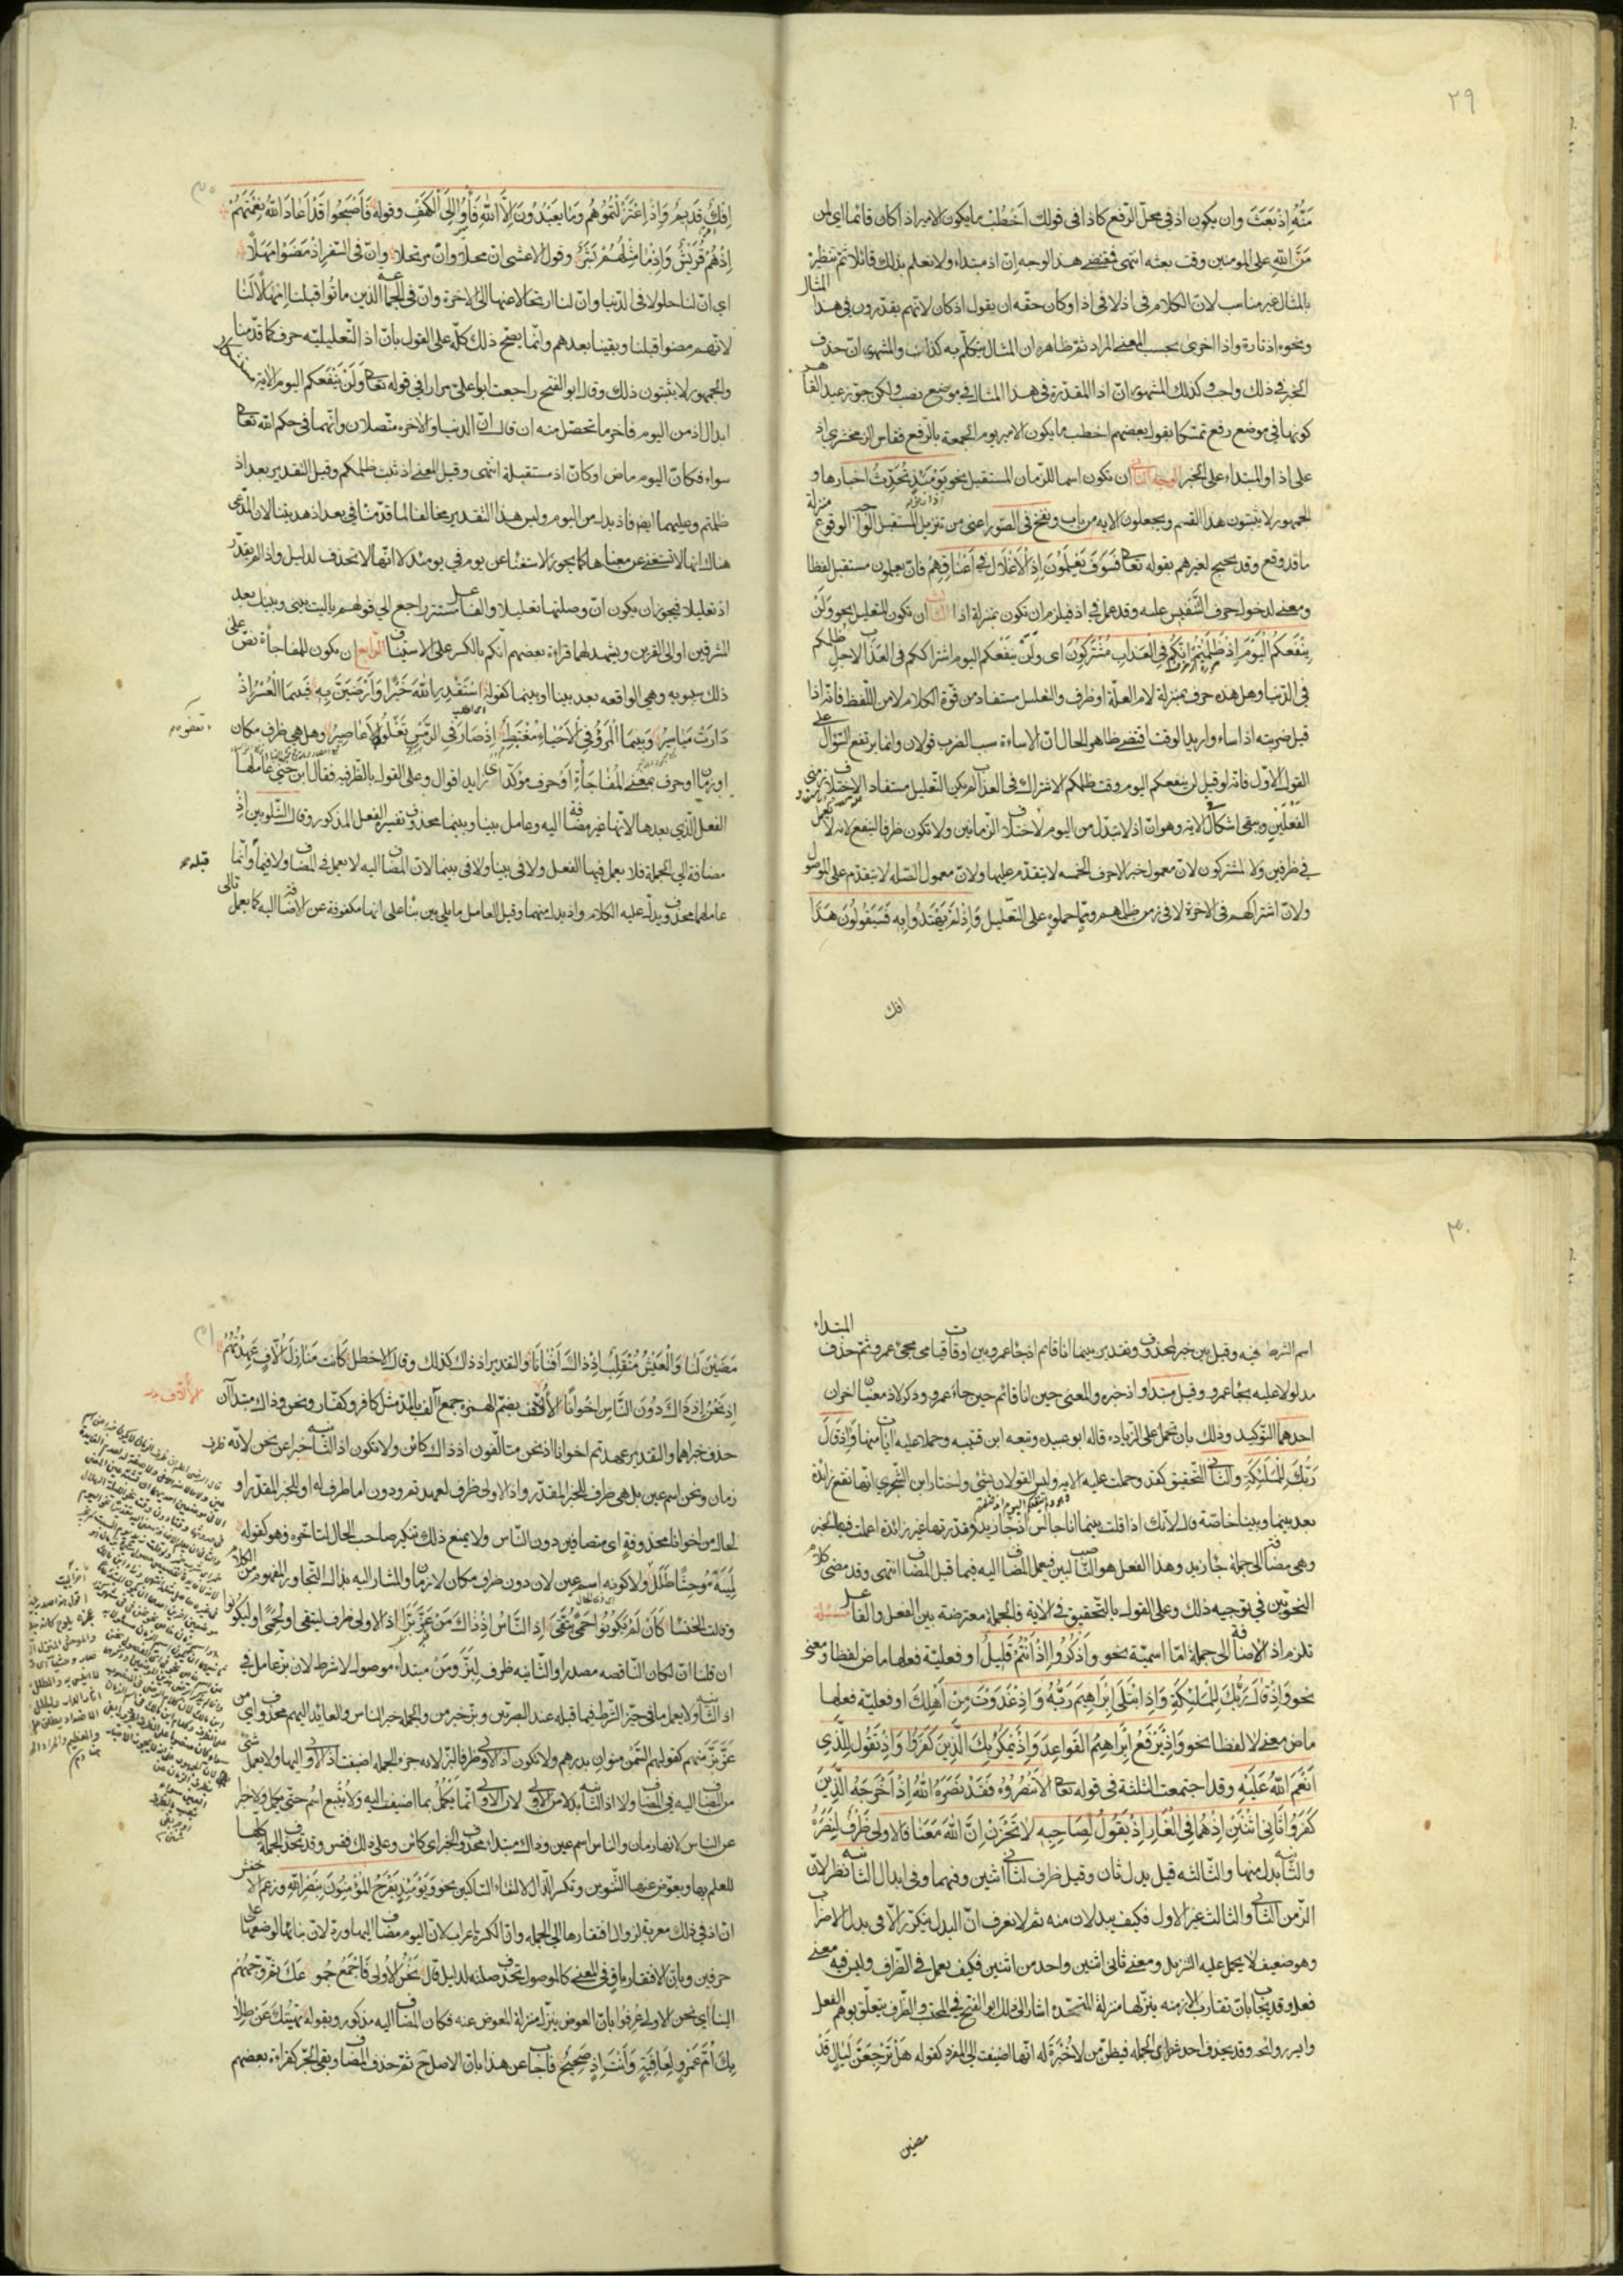 ٢٩
مَنُّهُ اِذْ بَعَثَ وان يكون اذ فى محلّ الرّفع كاذا فى قولك اَخْطُبُ ما يكون الامير اذا كان قائما اى لمن
مَنِّ اللّٰه على المؤمنين وقت بعثه انتهى فمقتضى هذا الوجه انّ اذ مبتداء ولا نعلم بذلك قائلا ثمّ تنظيره
بالمثال غير مناسب لانّ الكلام فى اذ لا فى اذا وكان حقّه ان يقول اذ كان لانّهم يقدّرون فى هذا المثال
ونحوه اذ تارة واذا اخرى بحسب المعنى المراد ثمّ ظاهره ان المثال يتكلّم به كذلك والمشهور انّ حذف
الخبر فى ذلك واجب وكذلك المشهور انّ اذا المقدّرة فى هذا المثال فى موضع نصب ولكن جوّز عبد القاهر
كونها فى موضع رفع تمسّكا بقول بعضهم اخطب ما يكون الامير يوم الجمعة بالرّفع فقاس الزمخشرى اذ
على اذا والمبتداء على الخبر الوجه الثانى ان تكون اسما للزمان المستقبل نحو يَوْمَئِذٍ تُحَدِّثُ اخبارها و
الجمهور لا يثبتون هذا القسم ويجعلون الاية من باب ونفخ فى الصّور اعنى من تنزيل المستقبل الواجب الوقوع منزلة
ما قد وقع وقد يحتج لغيرهم بقوله تعالى فَسَوْفَ يَعْلَمُونَ اِذِ الْاَغْلَالُ فِى اَعْنَاقِهِمْ فانّ يعلمون مستقبل لفظا
ومعنى لدخول حرف التّنفيس عليه وقد عمل فى اذ فيلزم ان تكون بمنزلة اذا الثالث ان تكون للتعليل نحو وَلَنْ
يَنْفَعَكُمُ الْيَوْمَ اِذْ ظَلَمْتُمْ اَنَّكُمْ فِى الْعَذَابِ مُشْتَرِكُونَ اى ولن ينفعكم اليوم اشتراككم فى العذاب لاجل ظلمكم
فى الدّنيا وهل هذه حرف بمنزلة لام العلّة او ظرف والتعليل مستفاد من قوّة الكلام لا من اللّفظ فانّه اذا
قيل ضربته اذ اساء واريد الوقت اقتضى ظاهر الحال انّ الاساءة سبب الضرب قولان وانما يرتفع السّؤال على
القول الاوّل فانّه لو قيل لن ينفعكم اليوم وقت ظلمكم الاشتراك فى العذاب لم يكن التّعليل مستفادا لاختلاف زمنى
الفعلين ويبقى اشكال فى الاية وهو انّ اذ لا تبدّل من اليوم لاختلاف الزّمانين ولا تكون ظرفا لينفع لانه لا يعمل
فى ظرفين ولا لمشتركون لانّ معمول خبر الاحرف الخمسه لا يتقدّم عليها ولانّ معمول الصّلة لا يتقدّم على الموصول
ولانّ اشتراكهم فى الاخرة لا فى زمن ظلمهم وممّا حملوه على التّعليل وَاِذْ لَمْ يَهْتَدُوا بِهِ فَسَيَقُولُونَ هَذَا
افك
اِفْكٌ قَدِيمٌ وَاِذِ اعْتَزَلْتُمُوهُمْ وَمَا يَعْبُدُونَ اِلَّا اللّٰهَ فَأْوُوا اِلَى الْكَهْفِ وقوله فَاَصْبَحُوا قَدْ اَعَادَ اللّٰهُ نِعْمَتَهُمْ
اِذْ هُمْ قُرَيْشٌ وَاِذْ مَا مِثْلَهُمْ بَشَرٌ وقول الاعشى انّ محلا وانّ مرتحلا وانّ فى السّفر اذ مَضَوْا مَهَلًا
اى انّ لنا حلولا فى الدّنيا وانّ لنا ارتحالا عنها الى الاخرة وانّ فى الجماعة الّذين ماتوا قبلنا امهالا لنا
لانّهم مضوا قبلنا وبقينا بعدهم وانّما يصحّ ذلك كلّه على القول بانّ اذ التّعليليّه حرف كما قدّمنا
والجمهور لا يثبتون ذلك وقال ابو الفتح راجعت ابا على مرارا فى قوله تعالى وَلَنْ يَنْفَعَكُمُ اليوم الاية مستشكلا
ابدال اذ من اليوم فاخر ما تحصّل منه ان قال انّ الدنيا والاخرة متّصلان وانّهما فى حكم اللّه تعالى
سواء فكانّ اليوم ماض او كانّ اذ مستقبلة انتهى وقيل المعنى اذ ثبت ظلمكم وقيل التقدير بعد اذ
ظلمتم وعليهما ايضا فاذ بدل من اليوم وليس هذا التقدير مخالفا لما قدّمنا فى بعد اذ هديتنا لانّ المدّعى
هناك انها لا تستغنى عن معناها كما يجوز الاستغناء عن يوم فى يومئذ لا انّها لا تحذف لدليل واذا لم يقدّر
اذ تعليلا فيجوز ان يكون انّ وصلتها تعليلا والفاعل مستتر راجع الى قولهم يا ليت بينى وبينك بعد
المشرقين او الى القرين ويشهد لهما قراءة بعضهم انّكم بالكسر على الاستيناف الرّابع ان يكون للمفاجأة نصّ على
ذلك سيبويه وهى الواقعه بعد بينا او بينما كقوله اسْتَقْدِرِ اللّٰهَ خَيْرًا وَارْضَيَنَّ بِهِ فَبَيْنَمَا الْعُسْرُ اِذْ
دَارَتْ مَيَاسِيرُ وَبَيْنَمَا الْمَرْءُ فِى الْاَحْيَاءِ مُغْتَبِطٌ اِذْ صَارَ فِى الرَّمْسِ تَعْفُوهُ الْاَعَاصِيرُ وهل هى ظرف مكان
او زمان او حرف بمعنى المُفَاجَأَةِ اَوْ حرف مؤكّد اى زايد اقوال وعلى القول بالظّرفيه فقال ابن جنّى عاملها
الفعل الّذى بعدها لانّها غير مضافة اليه وعامل بينا وبينما محذوف تفسيره الفعل المذكور وقال الشّلوبين اذ
مضافة الى الجملة فلا يعمل فيها الفعل ولا فى بينا ولا فى بينما لانّ المضاف اليه لا يعمل فى المضاف ولا فيما قبله وانّما
عاملهما محذوف يدلّ عليه الكلام واذ بدل منهما وقيل العامل ما يلى بين بناء على انها مكفوفة عن الاضافة اليه كما يعمل تالى
٣٠
اسم الشرط فيه وقيل بين خبر لمحذوف وتقدير بينما انا قائم اذ جاء عمرو بين اوقات قيامى مجئ عمرو ثمّ حذف المبتداء
مدلولا عليه بجاء عمرو وقيل مبتداء واذ خبره والمعنى حين انا قائم حين جاء عمرو وذكر لاذ معنيان اخران
احدهما التّوكيد وذلك بان تحمل على الزّيادة قاله ابو عبيده وتبعه ابن قتيبه وحملا عليه ايات منها وَاِذْ قَالَ
رَبُّكَ لِلْمَلٰئِكَةِ والثانى التّحقيق كقد وحملت عليه الاية وليس القولان بشئ واختار ابن الشّجرى انّها تقع زائدة
بعد بينما وبينا خاصّة قال لانّك اذا قلت بينما انا جالس اذ جاء زيد فقدّرتها غير زائدة اعملت فيها الخبر
وهى مضافة الى جملة جاء زيد وهذا الفعل هو النّاصب لبين فيعمل المضاف اليه فيما قبل المضاف انتهى وقد مضى كلام
النّحويّين فى توجيه ذلك وعلى القول بالتّحقيق فى الاية فالجملة معترضة بين الفعل والفاعل مسئلة
تلزم اذ الاضافة الى جملة امّا اسميّة نحو وَاذْكُرُوا اِذْ اَنْتُمْ قَلِيلٌ او فعليّة فعلها ماض لفظا ومعنى
نحو وَاِذْ قَالَ رَبُّكَ لِلْمَلٰئِكَةِ وَاِذِ ابْتَلَى اِبْرَاهِيمَ رَبُّهُ وَاِذْ غَدَوْتَ مِنْ اَهْلِكَ او فعليّة فعلها
ماض معنى لا لفظا نحو وَاِذْ يَرْفَعُ اِبْرَاهِيمُ الْقَوَاعِدَ وَاِذْ يَمْكُرُ بِكَ الَّذِينَ كَفَرُوا وَاِذْ تَقُولُ لِلَّذِى
اَنْعَمَ اللّٰهُ عَلَيْهِ وقد اجتمعت الثلثة فى قوله تعالى اِلَّا تَنْصُرُوهُ فَقَدْ نَصَرَهُ اللّٰهُ اِذْ اَخْرَجَهُ الَّذِينَ
كَفَرُوا ثَانِىَ اثْنَيْنِ اِذْ هُمَا فِى الْغَارِ اِذْ يَقُولُ لِصَاحِبِهِ لَا تَحْزَنْ اِنَّ اللّٰهَ مَعَنَا فالاولى ظرف لنصره
والثّانية بدل منها والثّالثه قيل بدل ثان وقيل ظرف لثانى اثنين وفيهما وفى ابدال الثانية نظر لانّ
الزّمن الثانى والثالث غير الاول فكيف يبدلان منه ثمّ لا نعرف انّ البدل يتكرّر الّا فى بدل الاضراب
وهو ضعيف لا يحمل عليه التنزيل ومعنى ثانى اثنين واحد من اثنين فكيف يعمل فى الظّرف وليس فيه معنى
فعل وقد يجاب بانّ تقارب الازمنه ينزّلها منزلة المتّحدة اشار الى ذلك ابو الفتح فى المحتسب والظّرف يتعلّق بوهم الفعل
وايسر روائحه وقد يحذف احد شطرى الجملة فيظنّ من لا خُبْرَةَ له انّها اضيفت الى المفرد كقوله هَلْ تَرْجِعَنَّ لَيَالٍ قَدْ
مضين
مَضَيْنَ لَنَا وَالْعَيْشُ مُنْقَلِبٌ اِذْ ذَاكَ اَفْنَانًا والتقدير اذ ذاك كذلك وقال الاخطل كَانَتْ مَنَازِلَ اُلَّافٍ عَهِدْتُهُمُ
اِذْ نَحْنُ اِذْ ذَاكَ دُونَ النَّاسِ اِخْوَانًا الاُلّاف بضمّ الهمزة جمع آلف بالمدّ مثل كافر وكفّار ونحن وذاك مبتدآن
حذف خبراهما والتقدير عهدتهم اخوانا اذ نحن متالّفون اذ ذاك كائن ولا تكون اذ الثانية خبرا عن نحن لانّه ظرف
زمان ونحن اسم عين بل هى ظرف للخبر المقدّر واذ الاولى ظرف لعهدتهم ودون اما ظرف له او للخبر المقدّر او
لحال من اخوانا محذوفةٍ اى متصافين دون النّاس ولا يمنع ذلك تنكير صاحب الحال لتاخّره فهو كقوله
لِمَيَّةَ مُوحِشًا طَلَلٌ ولا كونه اسم عين لان دون ظرف مكان لا زمان والمشار اليه بذاك التجاور المفهوم من الكلام
وقالت الخنساء كَأَنْ لَمْ يَكُونُوا حِمًى يُتَّقَى اِذِ النَّاسُ اِذْ ذَاكَ مَنْ عَزَّ بَزَّا اذ الاولى ظرف ليتقى او لحمى او ليكونوا
ان قلنا انّ لكان النّاقصه مصدرا والثّانيه ظرف لبَزَّ ومَنْ مبتداء موصول لا شرط لان بزّ عامل فى
اذ الثانية ولا يعمل ما فى حيّز الشّرط فيما قبله عند البصريّين وبزّ خبر من والجملة خبر الناس والعائد اليهم محذوف اى من
عَزَّ بَزَّ منهم كقولهم السّمْن منوان بدرهم ولا تكون اذ الاولى ظرفا لبزّ لانه جزء الجملة اضيفت اذ الاولى اليها ولا يعمل شئ
من المضاف اليه فى المضاف ولا اذ الثانية بدلا من الاولى لان الاولى انّما يَكْمُلُ بما اضيفت اليه ولا يُتْبَعُ اسم حتّى يكمل ولا خبرا
عن الناس لانها زمان والناس اسم عين وذاك مبتداء محذوف الخبر اى كائن وعلى ذلك فقس وقد تحذف الجملة كلّها
للعلم بها ويعوّض عنها التّنوين وتكسر الذّال لالتقاء السّاكنين نحو وَيَوْمَئِذٍ يَفْرَحُ الْمُؤْمِنُونَ بِنَصْرِ اللّٰهِ وزعم الاخفش
انّ اذ فى ذلك معربة لزوال افتقارها الى الجملة وانّ الكسرة اعراب لانّ اليوم مضاف اليها وردّ لانّ بنائها لوضعها على
حرفين وبانّ الافتقار باق فى المعنى كالموصول تحذف صلته لدليل قال نَحْنُ الْاُولٰى فَاجْمَعْ جُمُوعَكَ ثُمَّ وَجِّهْهُمْ
الينا اى نحن الاولى عُرِفُوا بانّ العوض ينزّل منزلة المعوض عنه فكان المضاف اليه مذكور وبقوله نَهَيْتُكَ عَنْ طِلَابِكَ
اُمَّ عَمْرٍو بِعَافِيَةٍ وَاَنْتَ اِذٍ صَحِيحُ فاجاب عن هذا بانّ الاصل ح ثمّ حذف المضاف وبقى الجرّ كقراءة بعضهم